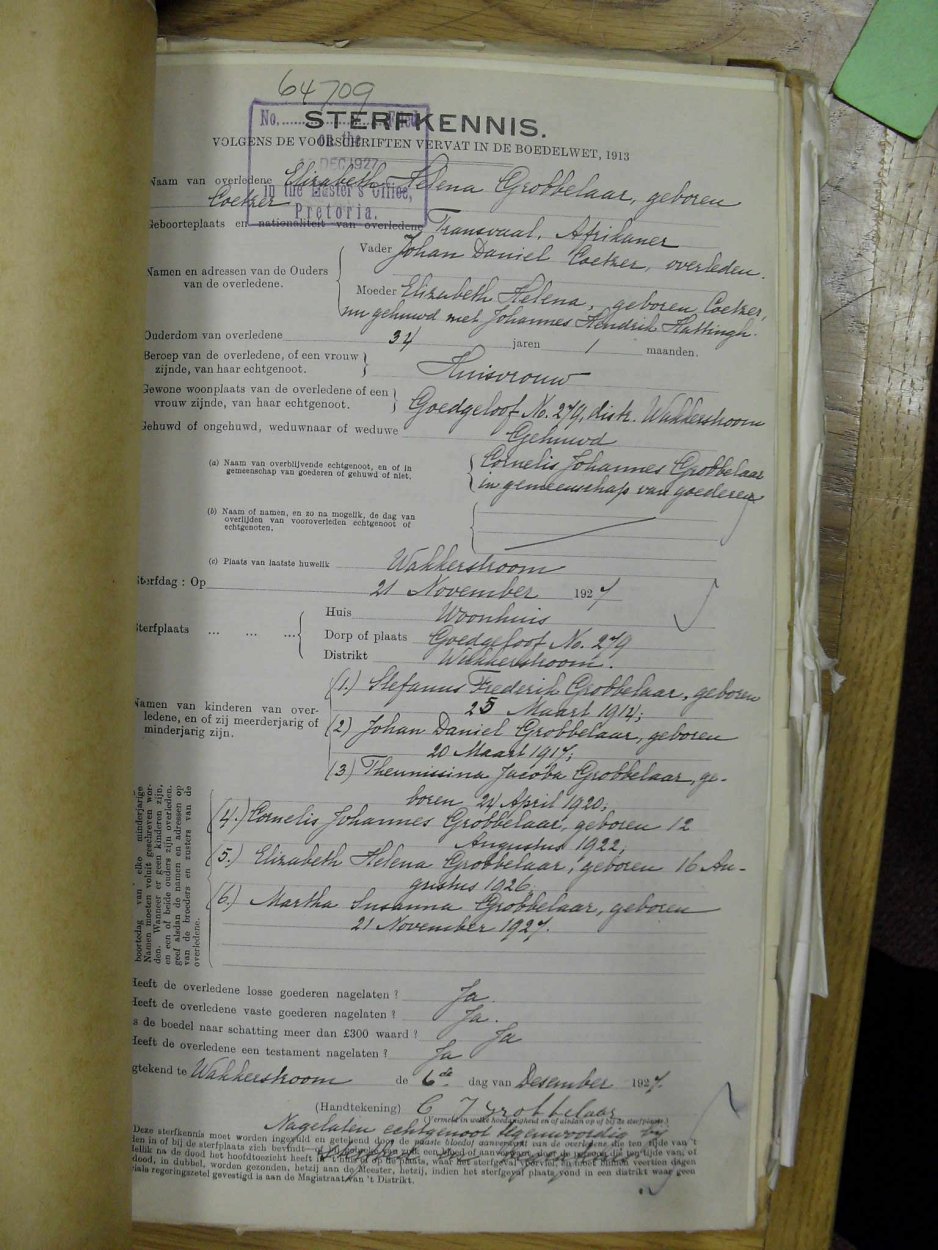 64709
STERFKENNIS.
VOLGENS DE VOORSCHRIFTEN VERVAT IN DE BOEDELWET, 1913
No. Filed
on the
DEC 1927
in the Master's Office,
Pretoria.
Naam van overledene Elizabeth Helena Grobbelaar, geboren
Coetzer
Geboorteplaats en nationaliteit van overledene Transvaal. Afrikaner
Namen en adressen van de Ouders
van de overledene.
Vader Johan Daniel Coetzer, overleden.
Moeder Elizabeth Helena, geboren Coetzer,
nu gehuwd met Johannes Hendrik Hattingh.
Ouderdom van overledene 34 jaren 1 maanden.
Beroep van de overledene, of een vrouw
zijnde, van haar echtgenoot.
Huisvrouw
Gewone woonplaats van de overledene of een
vrouw zijnde, van haar echtgenoot.
Goedgeloof No. 279, distr. Wakkerstroom
Gehuwd of ongehuwd, weduwnaar of weduwe Gehuwd
(a) Naam van overblijvende echtgenoot, en of in
gemeenschap van goederen of gehuwd of niet.
Cornelis Johannes Grobbelaar
in gemeenschap van goederen
(b) Naam of namen, en zo na mogelik, de dag van
overlijden van vooroverleden echtgenoot of
echtgenoten.
(c) Plaats van laatste huwelik Wakkerstroom
Sterfdag : Op 21 November 1927
Sterfplaats ... ... ...
Huis Woonhuis
Dorp of plaats Goedgeloof No. 279
Distrikt Wakkerstroom.
Namen van kinderen van over-
ledene, en of zij meerderjarig of
minderjarig zijn.
(1.) Stefanus Frederik Grobbelaar, geboren
25 Maart 1914;
(2) Johan Daniel Grobbelaar, geboren
20 Maart 1917;
(3) Theunissina Jacoba Grobbelaar, ge-
boren 24 April 1920;
(4.) Cornelis Johannes Grobbelaar, geboren 12
Augustus 1922;
(5.) Elizabeth Helena Grobbelaar, geboren 16 Au-
gustus 1926,
(6.) Martha Susanna Grobbelaar, geboren
21 November 1927.
boortedag van elke minderjarige
Namen moeten voluit geschreven wor-
den. Wanneer er geen kinderen zijn,
en een of beide ouders zijn overleden,
geef alsdan de namen en adressen op
van de broeders en zusters van de
overledene.
Heeft de overledene losse goederen nagelaten ? Ja.
Heeft de overledene vaste goederen nagelaten ? Ja.
Is de boedel naar schatting meer dan £300 waard ? Ja
Heeft de overledene een testament nagelaten ? Ja
gtekend te Wakkerstroom de 6de dag van Desember 1927.
(Handtekening) C J Grobbelaar
(Vermeld in welke hoedanigheid en of aldan op of bij de sterfplaats)
Nagelaten echtgenoot tegenwoordig bij
Deze sterfkennis moet worden ingevuld en getekend door de naaste bloedof aanverwant van de overledene die ten tijde van 't
den in of bij de sterfplaats zich bevindt
delik na de dood het hoofdtoezicht heeft in 't huis of op de plaats, waar het sterfgeval voorviel, en moet binnen veertien dagen
dood, in dubbel, worden gezonden, hetzij aan de Meester, hetzij, indien het sterfgeval plaats vond in een distrikt waar geen
vinsiale regeringszetel gevestigd is aan de Magistraat van 't Distrikt.